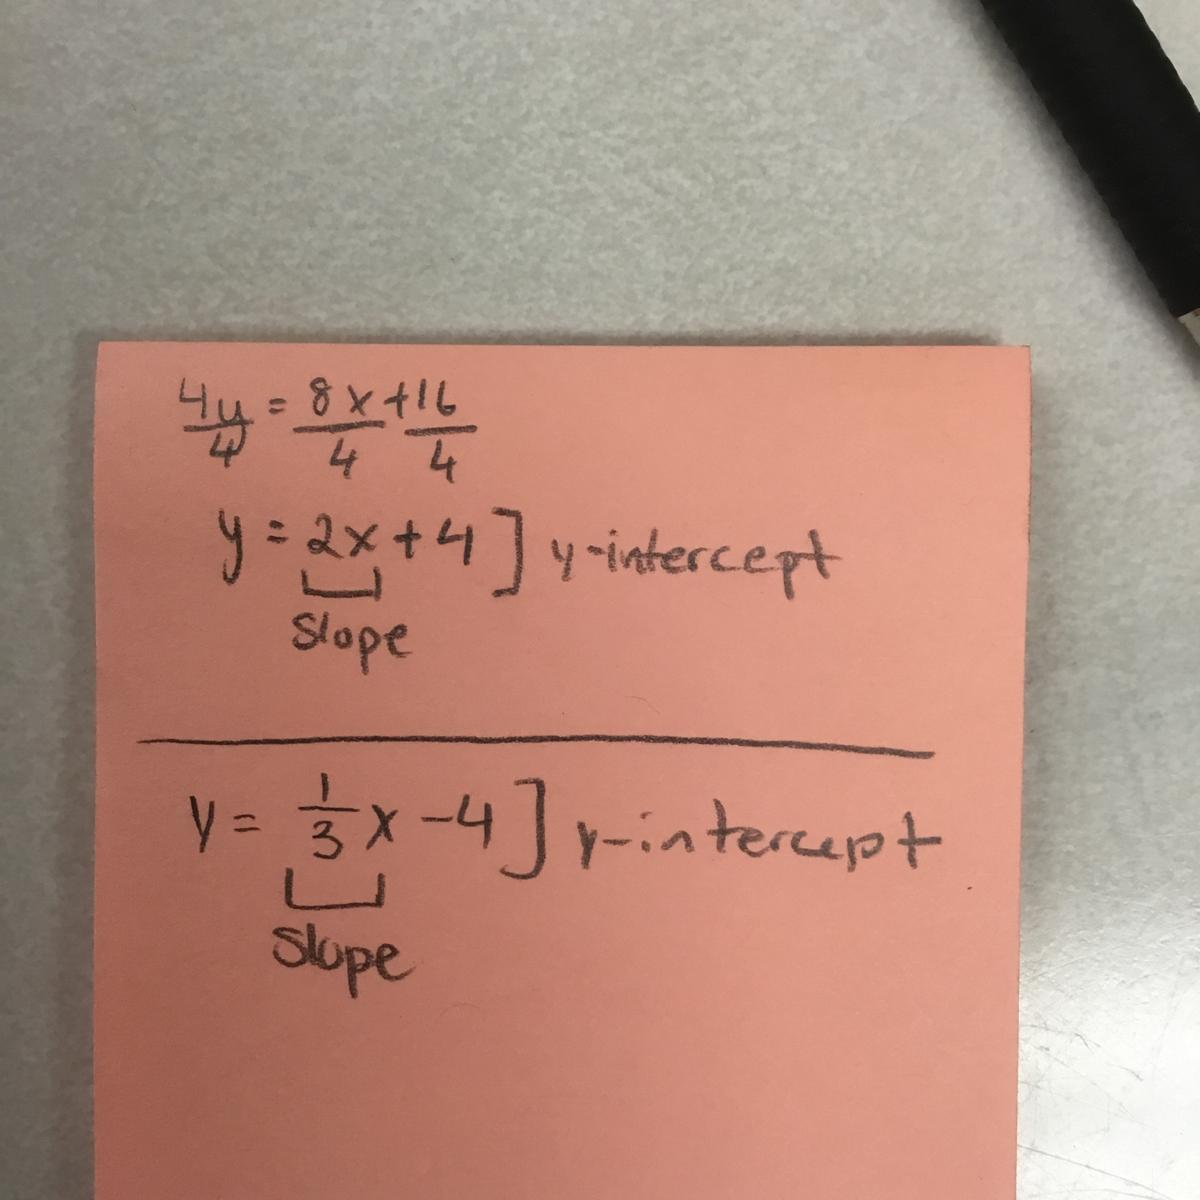 4y/4 = 8x/4 + 16/4
y = 2x + 4 ] y-intercept
slope
y = 1/3 x - 4 ] y-intercept
slope